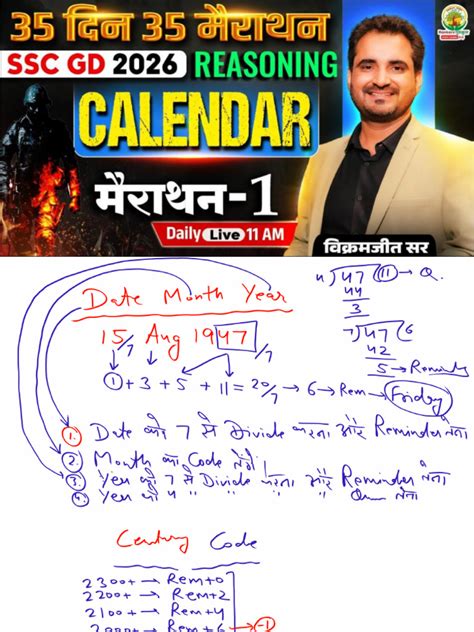 35 दिन 35 मैराथन
SSC GD 2026 REASONING
CALENDAR
मैराथन-1
Daily Live 11 AM
विक्रमजीत सर
Date Month Year
15/7 Aug 1947/7
1+3+5+11=20/7→6→Rem→Friday
4)47(11→Q.
44
3
7)47(6
42
5→Reminder
1. Date को 7 से Divide करना और Reminder लेना
2. Month का Code लेना
3. Year को 7 से Divide करना और Reminder लेना
4. Year को 4 " Divide " " Quo लेना
Century Code
2300+→Rem+0
2200+→Rem+2
2100+→Rem+4
2000+→Rem+6→-1